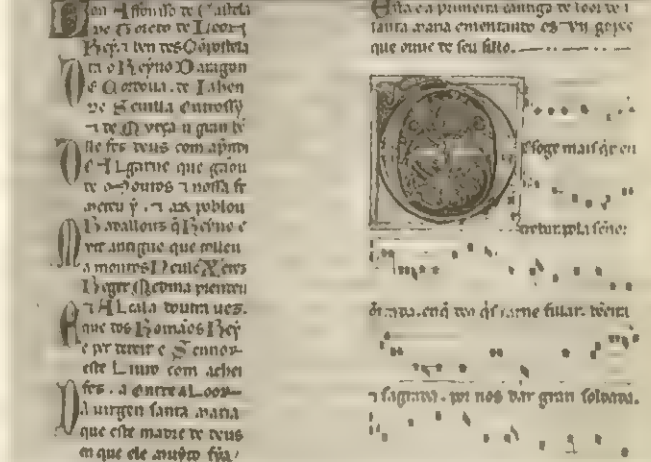 Don Affonsso de Castela
de Toledo de Leon
Rey ⁊ ben des Conpostela
ta o Reyno Daragon
De Cordoua. de Iahen
de Seuilla outrossy
⁊ de Murça u gran bē
lle fez deus com aprēdi
que gāou
de Mouros ⁊ nossa fe
meteu y. ⁊ ar poblou
Badallouz q̄ Reyno e
que tolleu
a mouros Neul ⁊ Xeres
Beger Medina prendeu
⁊ Alcala doutra uez.
que dos Romãos Rey
e per dereit e Sennor
este Liuro com achei
fez. a onrr e a Loor
Da uirgen santa maria
que este madre de deus
en que ele muyto fia
Esta e a primeira cantiga de loor de
santa maria ementando os VII goyos
que ouue de seu fillo.
Des oge mais q̄r eu
trobar pola sennor
onrrada. enq̄ deus q̄s carne fillar. bēeita
⁊ sagrada. por nos dar gran soldada.